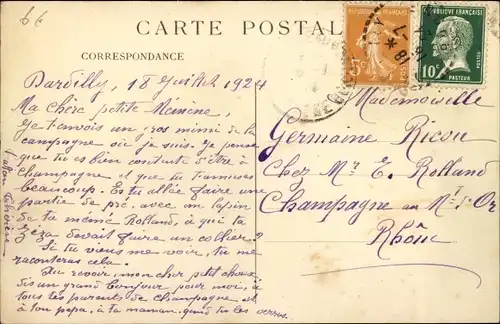 CARTE POSTALE
CORRESPONDANCE
Dardilly, 18 Juillet 1924
Ma chère petite
Je t'envois un gros mimi de la
campagne où je suis. Je pense
que tu es bien contente d'être à
champagne et que tu t'amuses
beaucoup. Es tu allée faire une
partie de pré, avec un lapin
de ta mémé Rolland, à qui ta
Zéza devait faire un collier?
Si tu viens me voir, tu me
raconteras cela.
Au revoir, mon cher petit chou,
dis un grand bonjour pour moi, à
tous les parents de champagne et
à ton papa, à ta maman, quand tu les verras.
RÉPUBLIQUE FRANÇAISE
5c
POSTES
RÉPUBLIQUE FRANÇAISE
10c
PASTEUR
Mademoiselle
Germaine Ricou
Chez Mr E. Rolland
Champagne au Mt d'Or
Rhône